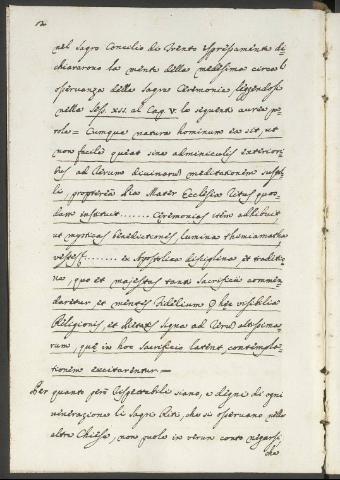 12
nel Sagro Concilio di Trento espressamente di-
chiararono la mente della medesima circa l'
osservanza della Sagre Ceremonie leggendosi
nella Sess. XII. al Cap. V. le seguenti auree pa-
role = Cumque natura hominum ea sit, ut
non facile queat sine adminiculis exteriori-
bus ad rerum divinarum meditationem sustol-
li, propterea Pia Mater Ecclesia Ritus quos-
dam instituit ....... Ceremonias item adhibuit,
ut mysticas benedictiones, lumina, thymiamata,
vestes ........ ex Apostolica disciplina et traditio-
ne, quo et majestas tanti Sacrificii commen-
daretur, et mentes Fidelium per hæc visibilia
Religionis, et Pietatis Signa ad rerum altissima-
rum, quæ in hoc Sacrificio latent, contempla-
tionem excitarentur =
Per quanto però rispettabili siano, e degni di ogni
venerazione li Sagri Riti, che si osservano nelle
altre Chiese, non puole in verun conto negarsi,
che